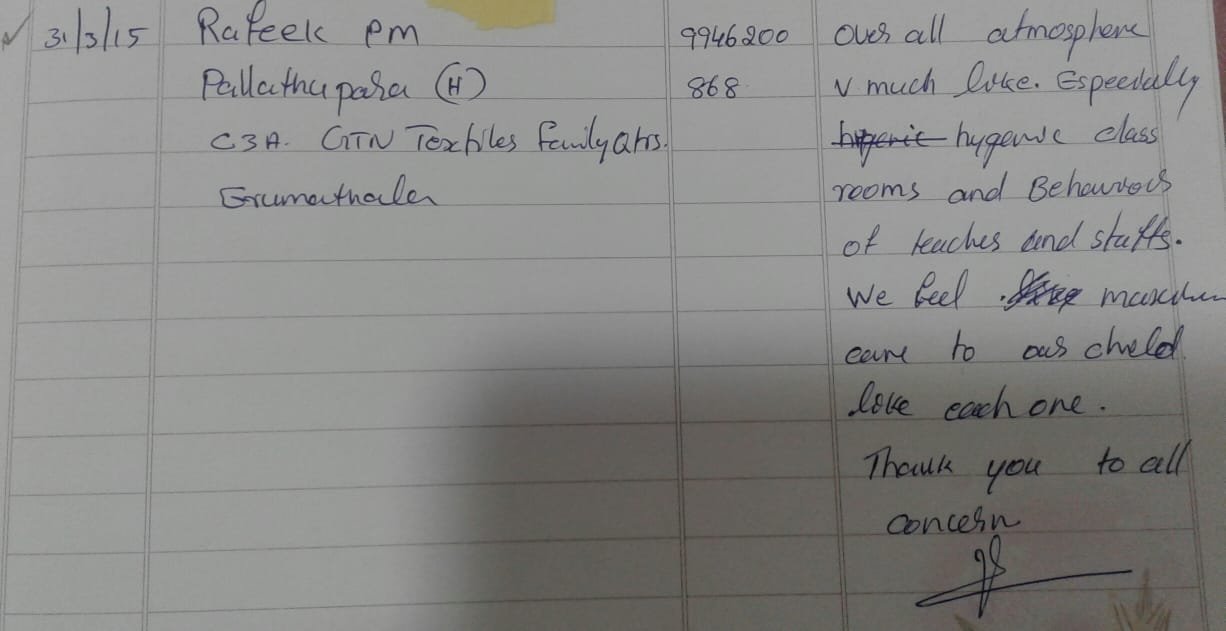 31/3/15 Rafeek PM 9946200 Over all atmosphere
Pallathupara (H) 868 V much like. Especially
C3A. GTN Textiles Family Qtrs. hygenic class
Erumathala rooms and Behaviours
of teaches and staffs.
We feel maximum
care to our child
love each one.
Thank you to all
concern